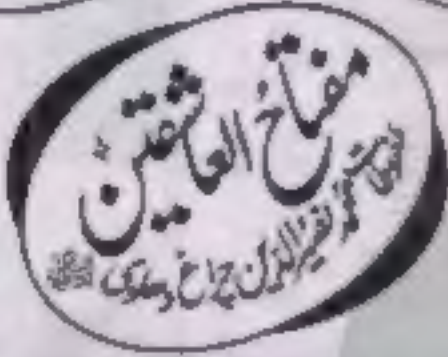 مفتاح العاشقین
ملفوظات محمد نصیر الدین چراغ دہلوی